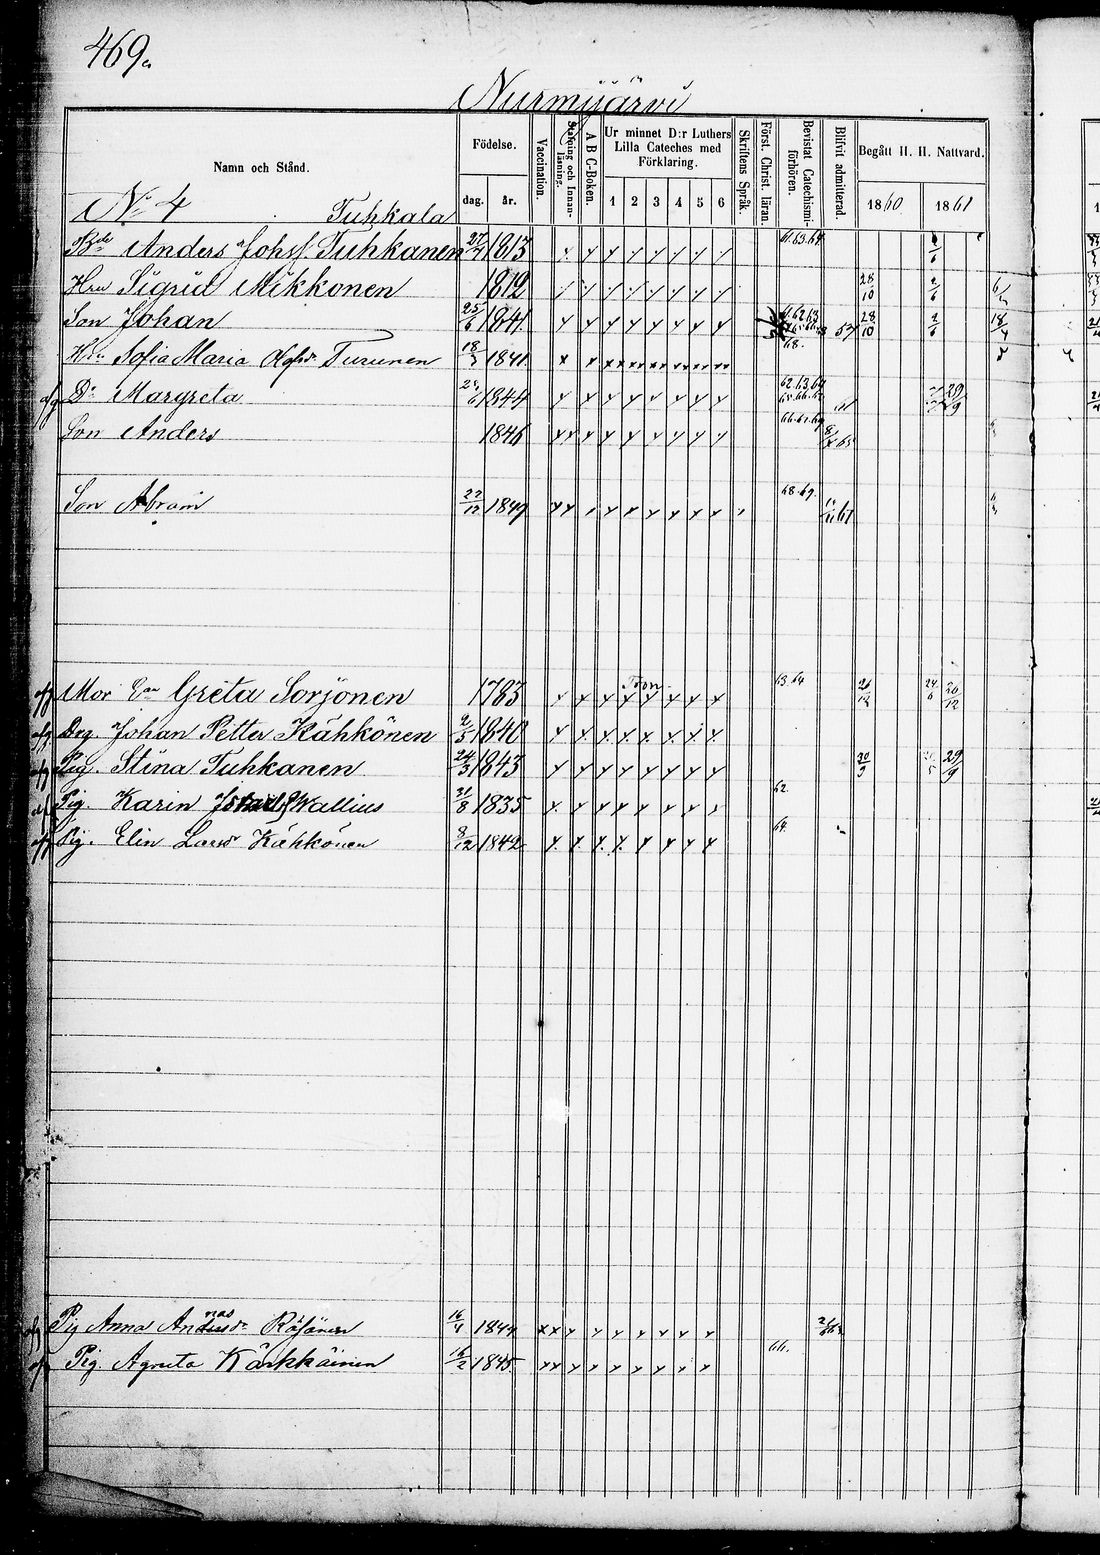 469a
Nurmijärvi
Namn och Stånd. Födelse. dag. år. Vaccination. Stafning och Innanläsning. A B C-Boken. Ur minnet D:r Luthers Lilla Cateches med Förklaring. 1 2 3 4 5 6 Skriftens Språk. Först. Christ. läran. Bevistat Catechismiförhören. Blifvit admitterad. Begått H. H. Nattvard. 1860 1861
No 4 Tuhkala
Bde Anders Johsf Tuhkanen 27/7 1813 61.63.64 2/6
Hru Sigrid Mikkonen 1812 28/10 2/6
Son Johan 25/6 1841 28/10 2/6 18/4
Hru Sofia Maria Turunen 1841 68.
afg Dr Margreta 1844 62.63.64 65.66.67 29/9
Son Anders 1846 66.67.69 65
Son Abram 22/12 1849 68.69. 67
afg Mor En Greta Sorjonen 1783 63.64 20/12
afg Drg. Johan Petter Kähkönen 2/5 1840
afg Pig. Stina Tuhkanen 24/3 1843 30/9 29/9
af Pig. Karin Wallius 31/8 1835 62.
afg Pig. Elin Larsdr Kähkönen 8/12 1842 64.
afg Pig Anna Räsänen 16/4 1844
afg Pig. Agneta Kärkkäinen 16/2 1845 66.